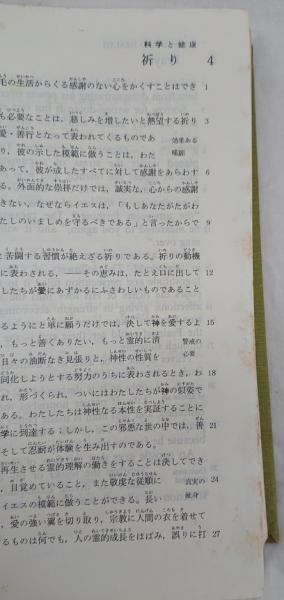 科学と健康
祈り 4
毛の生活からくる感謝のない心をかくすことはでき 1
も必要なことは，慈しみを増したいと熱望する祈り 3
愛・善行となって表われてくるものであ 効果ある
り，彼の示した模範に倣うことは，わた 嘆願
あって，彼が成したすべてに対して感謝をあらわす 6
る。外面的な崇拝だけでは，誠実な，心からの感謝
きない，なぜならイエスは，「もしあなたがたがわ
たしのいましめを守るべきである」と言ったからで 9
と苦闘する習慣が絶えざる祈りである。祈りの動機
に表われされる，——その恵みは，たとえ口に出して 12
したちが愛にあずかるにふさわしいものであること
るようにと単に願うだけでは，決して神を愛するよ 15
，もっと善くありたい，もっと霊的に清 警戒の
日々の油断なき見張りと，神の性質を 必要
同化しようとする努力のうちに表わされるとき，わ 18
れ，形づくられ，ついにはわたしたちが神の似姿で
ある。わたしたちは神性なる本性を実証することに
学に到達する；しかし，この邪悪な世の中では，善 21
そして忍耐が体験を生み出すのである。
再生させる霊的理解の働きをすることは決してでき
，目覚めていること，また敬虔な従順に 24 真実の
イエスの模範に倣うことができる。長い 献身
，愛の強い翼を切り取り，宗教に人間の衣を着せて
るものは何でも，人の霊的成長をはばみ，誤りに打 27